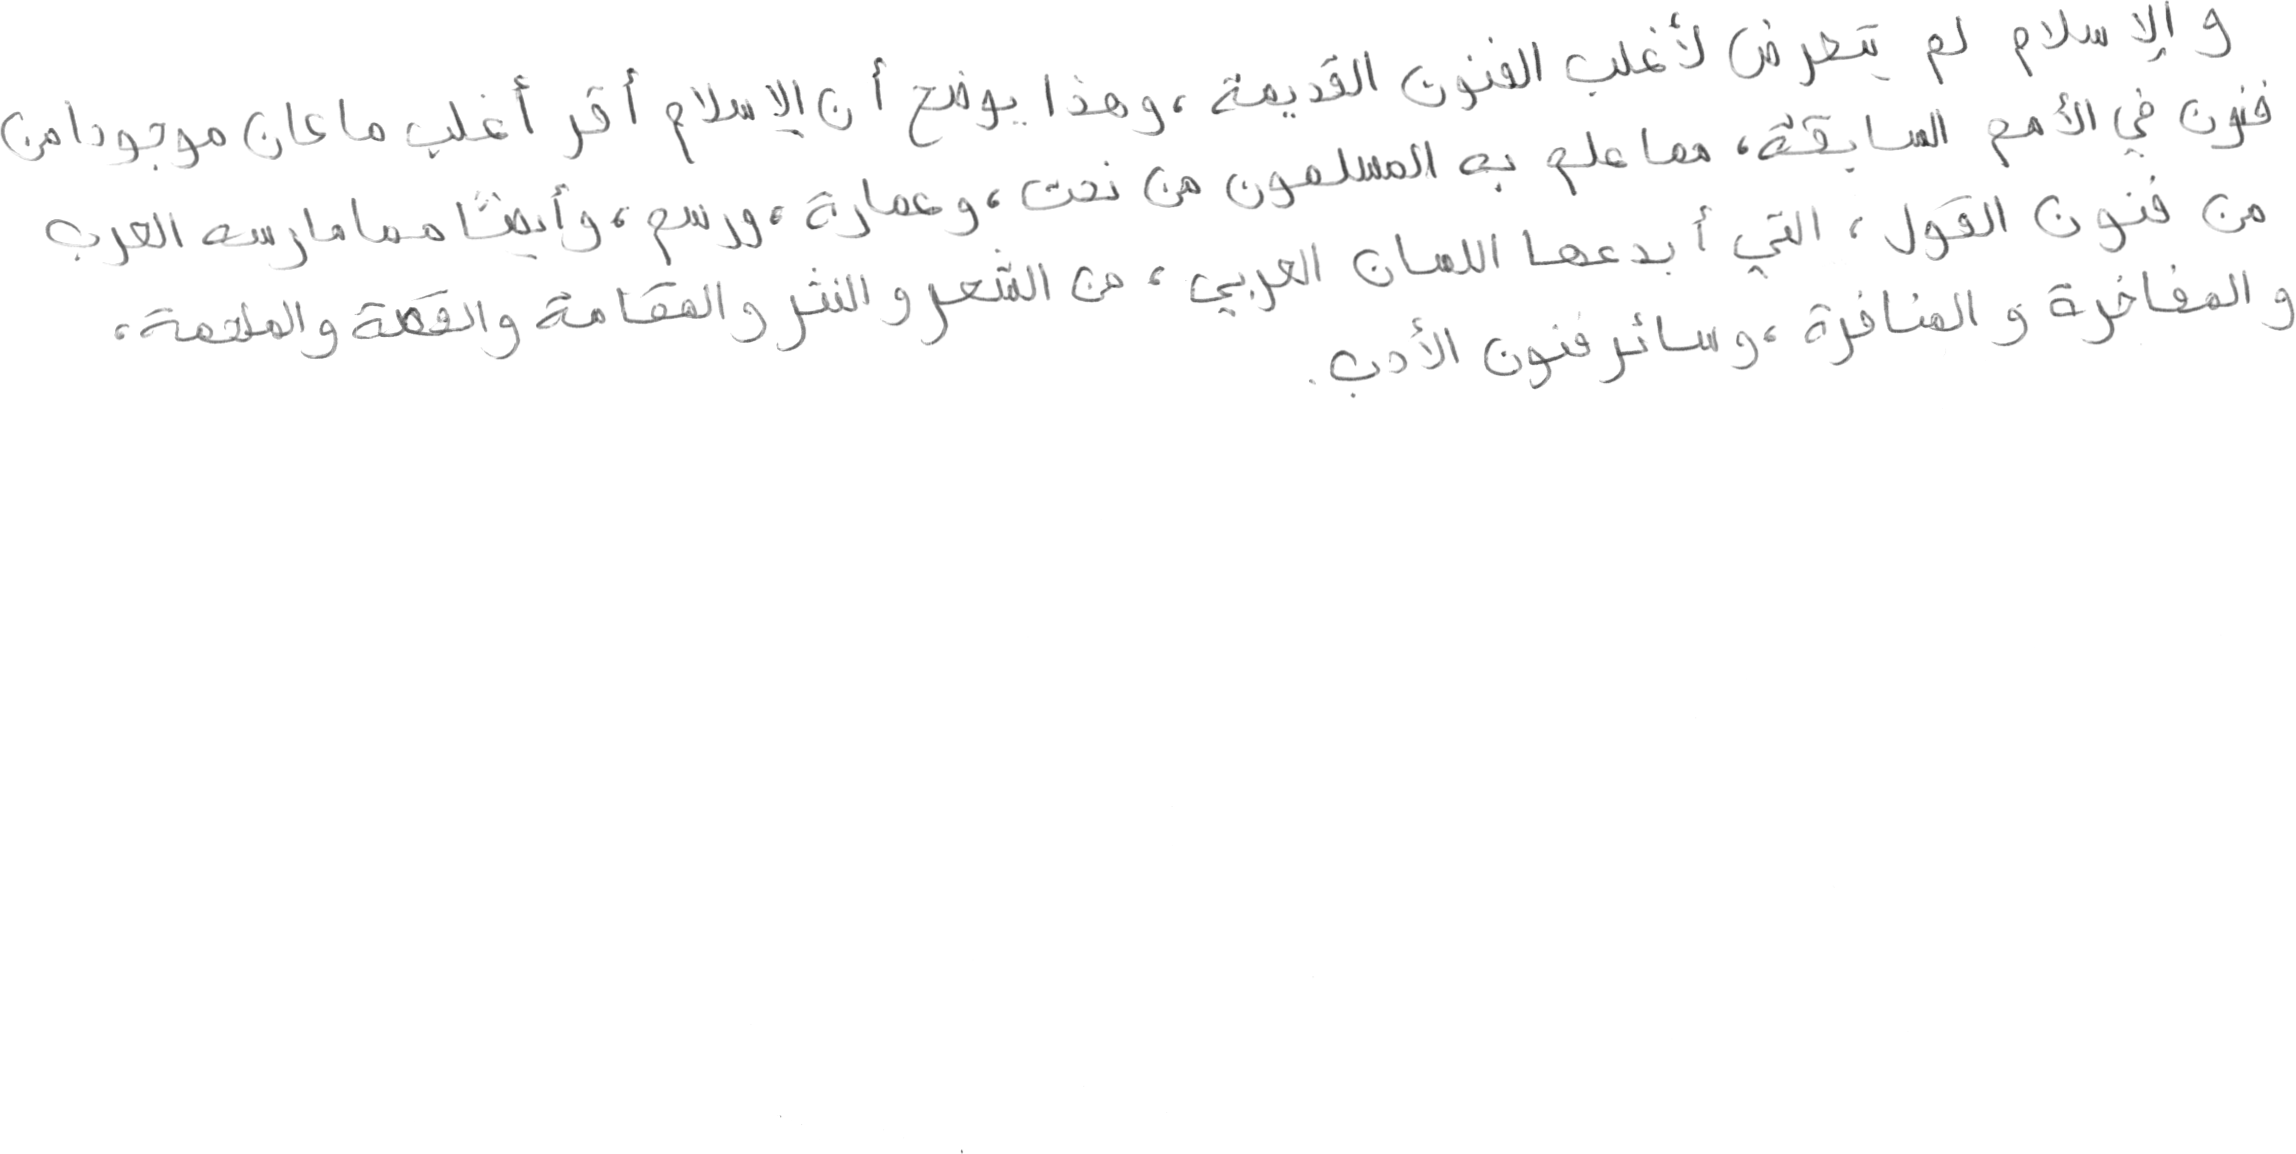 والإسلام لم يتعرض لأغلب الفنون القديمة، وهذا يوضح أن الإسلام أقر أغلب ما كان موجودا من
فنون في الأمم السابقة، مما علم به المسلمون من نحت، وعمارة، ورسم، وأيضًا مما مارسه العرب
من فنون القول، التي أبدعها اللسان العربي، من الشعر والنثر والمقامة والقصة والملحمة،
والمفاخرة والمنافرة، وسائر فنون الأدب.